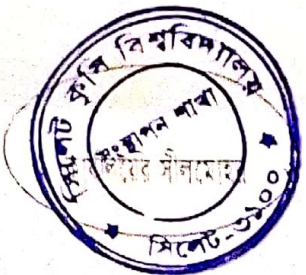 সিলেট কৃষি বিশ্ববিদ্যালয়
সংস্থাপন শাখা
সীলমোহর
সিলেট-৩১০০